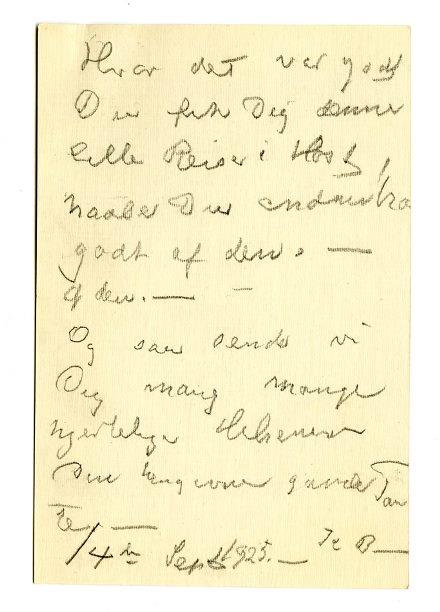 Hvor det var godt
Du fik Dig denne
lille Reise i Høst,
haaber Du endnu har
godt af den. —
af den. — —
Og saa sender vi
Dig mang mange
hjertelige Hilsener
Din hengivne gamle Tan
te —
14de Sept 1925. — B—